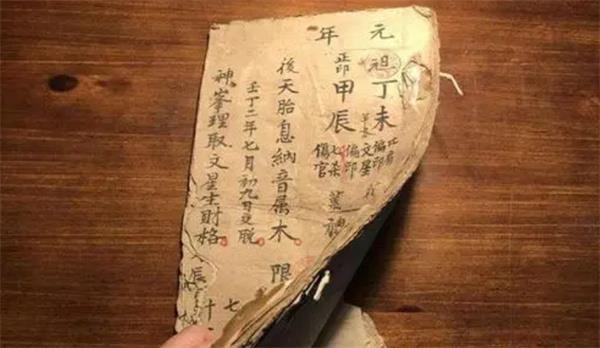 元年
祖丁未
比肩
偏印
文星
正印甲辰
偏印
七杀
傷官
後天胎息納音属木
限
壬丁二年七月初九日交脱
神峯理取文星生財格
辰
七
十